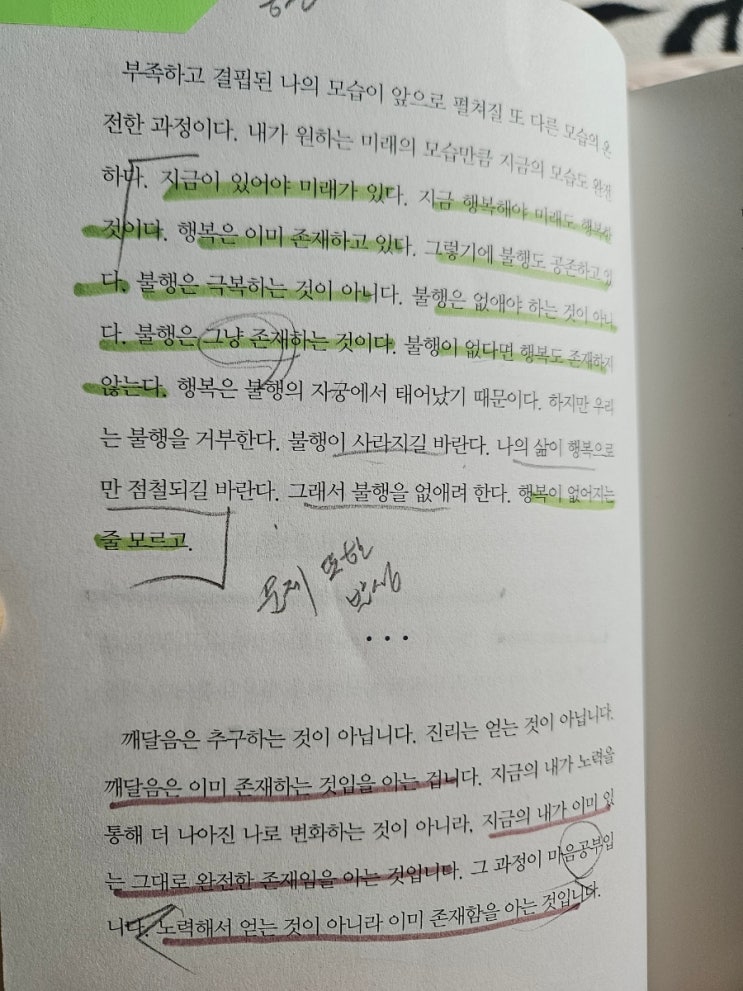 부족하고 결핍된 나의 모습이 앞으로 펼쳐질 또 다른 모습의 온
전한 과정이다. 내가 원하는 미래의 모습만큼 지금의 모습도 완전
하다. 지금이 있어야 미래가 있다. 지금 행복해야 미래도 행복할
것이다. 행복은 이미 존재하고 있다. 그렇기에 불행도 공존하고 있
다. 불행은 극복하는 것이 아니다. 불행은 없애야 하는 것이 아니
다. 불행은 그냥 존재하는 것이다. 불행이 없다면 행복도 존재하지
않는다. 행복은 불행의 자궁에서 태어났기 때문이다. 하지만 우리
는 불행을 거부한다. 불행이 사라지길 바란다. 나의 삶이 행복으로
만 점철되길 바란다. 그래서 불행을 없애려 한다. 행복이 없어지는
줄 모르고.
문제 또한
...
깨달음은 추구하는 것이 아닙니다. 진리는 얻는 것이 아닙니다.
깨달음은 이미 존재하는 것임을 아는 겁니다. 지금의 내가 노력을
통해 더 나아진 나로 변화하는 것이 아니라, 지금의 내가 이미 있
는 그대로 완전한 존재임을 아는 것입니다. 그 과정이 마음공부입
니다. 노력해서 얻는 것이 아니라 이미 존재함을 아는 것입니다.